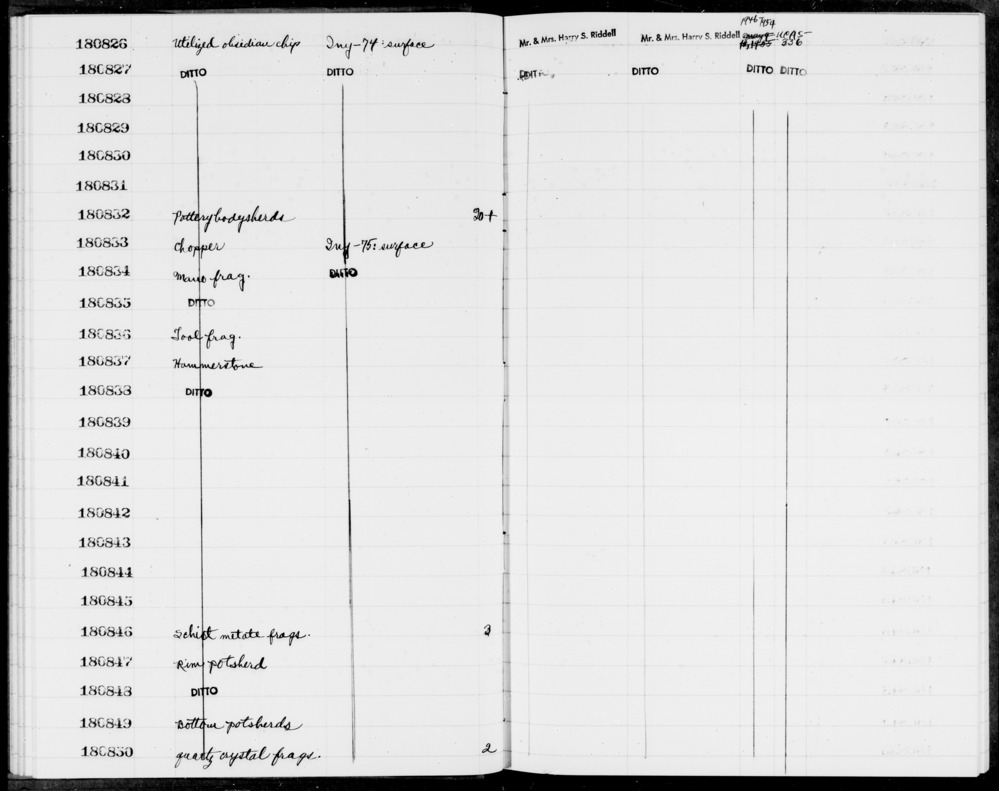 1946-1954
180826 Utilized obsidian chip Iny-74: surface Mr. & Mrs. Harry S. Riddell Mr. & Mrs. Harry S. Riddell UCAS-
336
180827 DITTO DITTO DITTO DITTO DITTO DITTO
180828
180829
180830
180831
180832 Pottery bodysherds 20+
180833 Chopper Iny-75: surface
180834 Mano frag. DITTO
180835 DITTO
180836 Tool frag.
180837 Hammerstone
180838 DITTO
180839
180840
180841
180842
180843
180844
180845
180846 Schist metate frags. 3
180847 Rim potsherd
180848 DITTO
180849 Bottom potsherds
180850 quartz crystal frags. 2